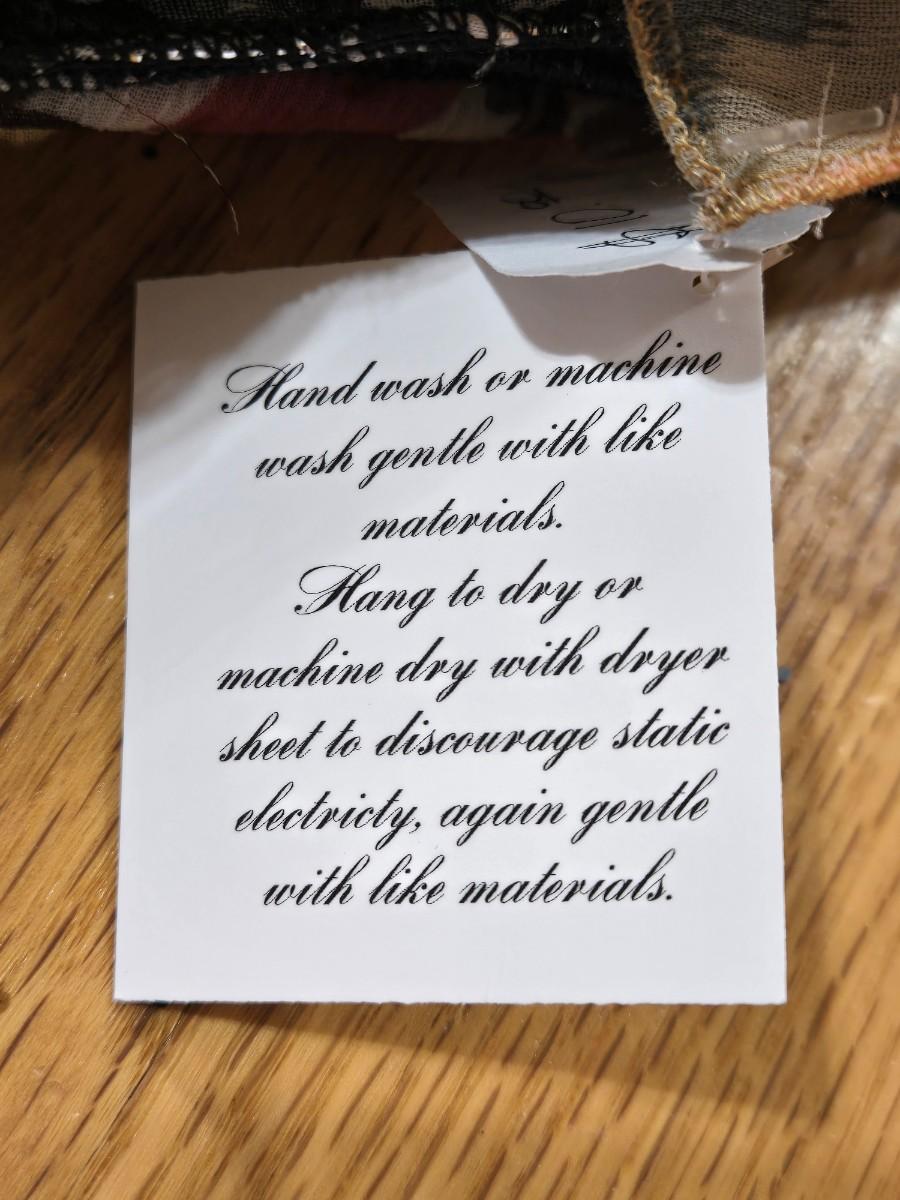 Hand wash or machine
wash gentle with like
materials.
Hang to dry or
machine dry with dryer
sheet to discourage static
electricty, again gentle
with like materials.